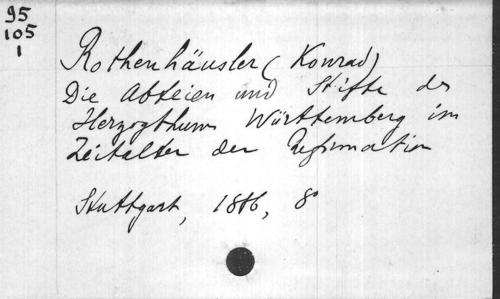 95
105
1
Rothenhäusler (Konrad)
Die Abteien und Stifte des
Herzogthums Württemberg im
Zeitalter der Reformation
Stuttgart, 1886, 8°